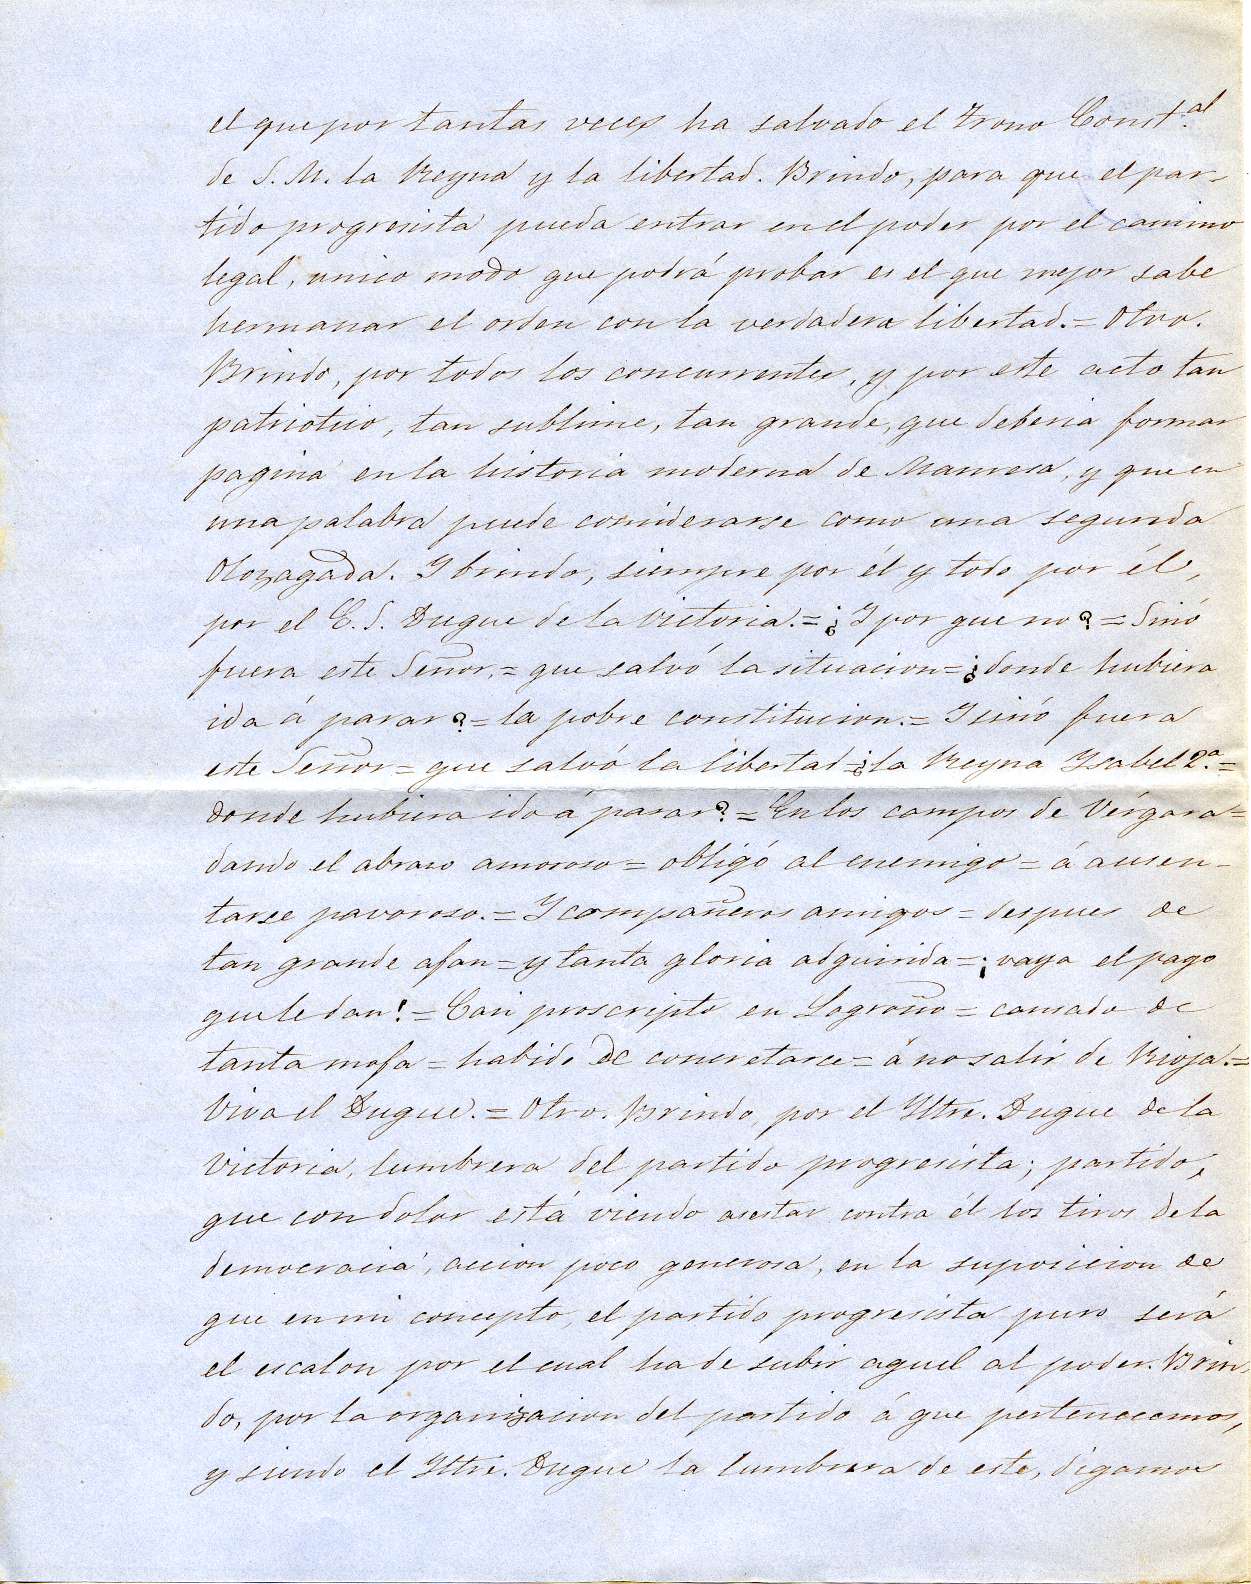 el que por tantas veces ha salvado el Trono Const.al
de S. M. la Reyna y la libertad. Brindo, para que el par-
tido progresista pueda entrar en el poder por el camino
legal, unico modo que podrá probar es el que mejor sabe
hermanar el orden con la verdadera libertad. = Otro.
Brindo, por todos los concurrentes, y por este acto tan
patriotico, tan sublime, tan grande, que deberia formar
pagina en la historia moderna de Manresa, y que en
una palabra puede considerarse como una segunda
Olozagada. Y brindo, siempre por él y todo por él,
por el E. S. Duque de la Victoria. = ¿Y por que no? = Sinó
fuera este Señor, = que salvó la situacion = ¿donde hubiera
ida á parar? = la pobre constitucion. = Y sinó fuera
este Señor = que salvó la libertad = ¿la Reyna Ysabel 2.ª =
donde hubiera ido á parar? = En los campos de Vérgara =
dando el abrazo amoroso = obligó al enemigo = á ausen-
tarse pavoroso. = Y compañeros amigos = despues de
tan grande afan = y tanta gloria adquirida = ¡vaya el pago
que le dan! = Casi proscripto en Logroño = cansado de
tanta mofa = habido de concretarse = á no salir de Rioja. =
Viva el Duque. = Otro. Brindo, por el Yltre. Duque de la
Victoria, lumbrera del partido progresista; partido,
que con dolor está viendo asestar contra él los tiros de la
democracia, accion poco generosa, en la suposicion de
que en mi concepto, el partido progresista puro será
el escalon por el cual ha de subir aquel al poder. Brin-
do, por la organizacion del partido á que pertenecemos,
y siendo el Yltre. Duque la lumbrera de este, digamos